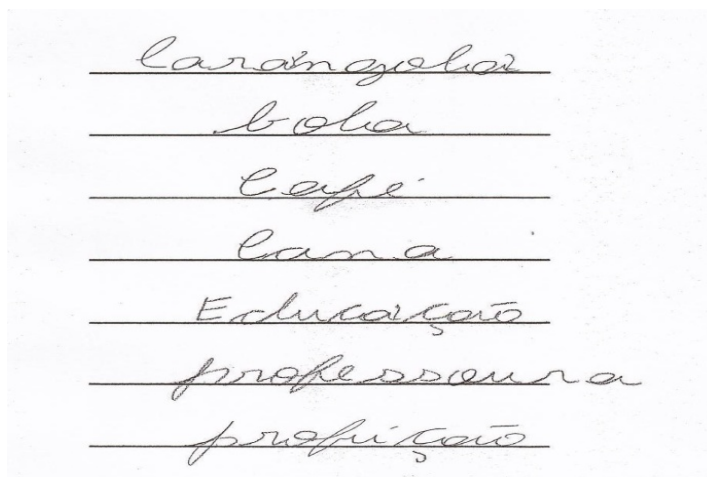 Carangola
bola
Café
Cana
Educação
professoura
profição